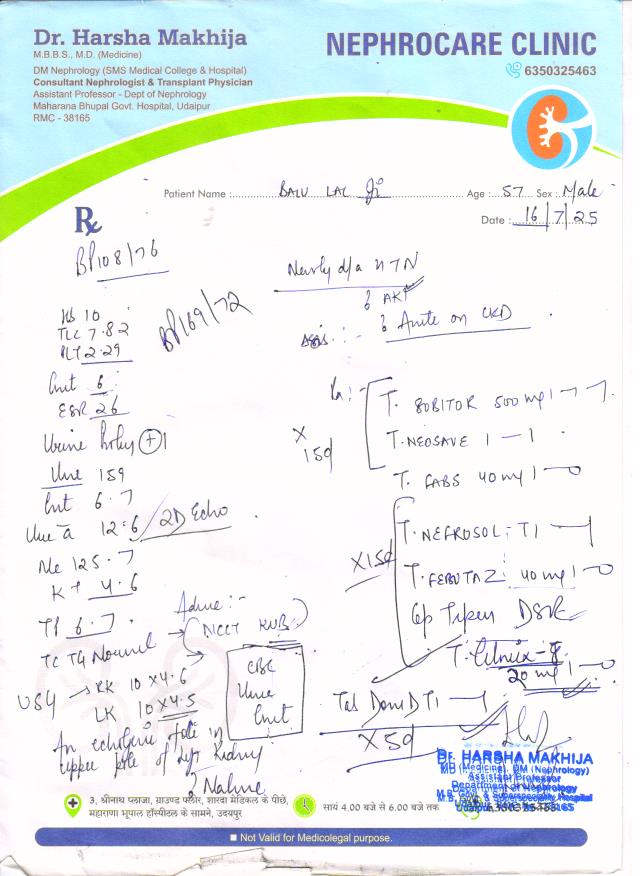 Dr. Harsha Makhija
M.B.B.S., M.D. (Medicine)
DM Nephrology (SMS Medical College & Hospital)
Consultant Nephrologist & Transplant Physician
Assistant Professor - Dept of Nephrology
Maharana Bhupal Govt. Hospital, Udaipur
RMC - 38165
NEPHROCARE CLINIC
6350325463
Patient Name : BALU LAL Ji Age : 57 Sex : Male
Date : 16/7/25
Rx
BP 108/76
Newly d/a HTN
AKI
Acute on CKD
BP 169/72
Hb 10
TLC 7.82
PLT 2.29
Cnit 6
ESR 26
Urine +1
Urea 159
Cnt 6.7
12.6 / 2D Echo
Na 125.7
K+ 4.6
TP 6.7
TC TG Normal
USG → RK 10 x 4.6
LK 10 x 4.5
An echogenic foci in
upper pole of left kidney
? Nature
Advice :-
NCCT KUB
CBC
Urea
Cnit
Rx :-
T. SOBITOR 500 mg 1-1-1
T. NEOSAVE 1-1
x 15d
T. FABS 40 mg 1-0
T. NEFROSOL-T 1-1
T. FEBUTAZ 40 mg 1-0
Cap DSR
x 15d
T. Cilnix-T
20 mg 1-0
Tab Dom DT 1-1
x 5d
Dr. HARSHA MAKHIJA
MD (Medicine), DM (Nephrology)
Assistant Professor
Department of Nephrology
M.B. Govt. & Superspeciality Hospital
Udaipur
3, श्रीनाथ प्लाजा, ग्राउण्ड फ्लोर, शारदा मेडिकल के पीछे,
महाराणा भूपाल हॉस्पीटल के सामने, उदयपुर
सायं 4.00 बजे से 6.00 बजे तक
Not Valid for Medicolegal purpose.